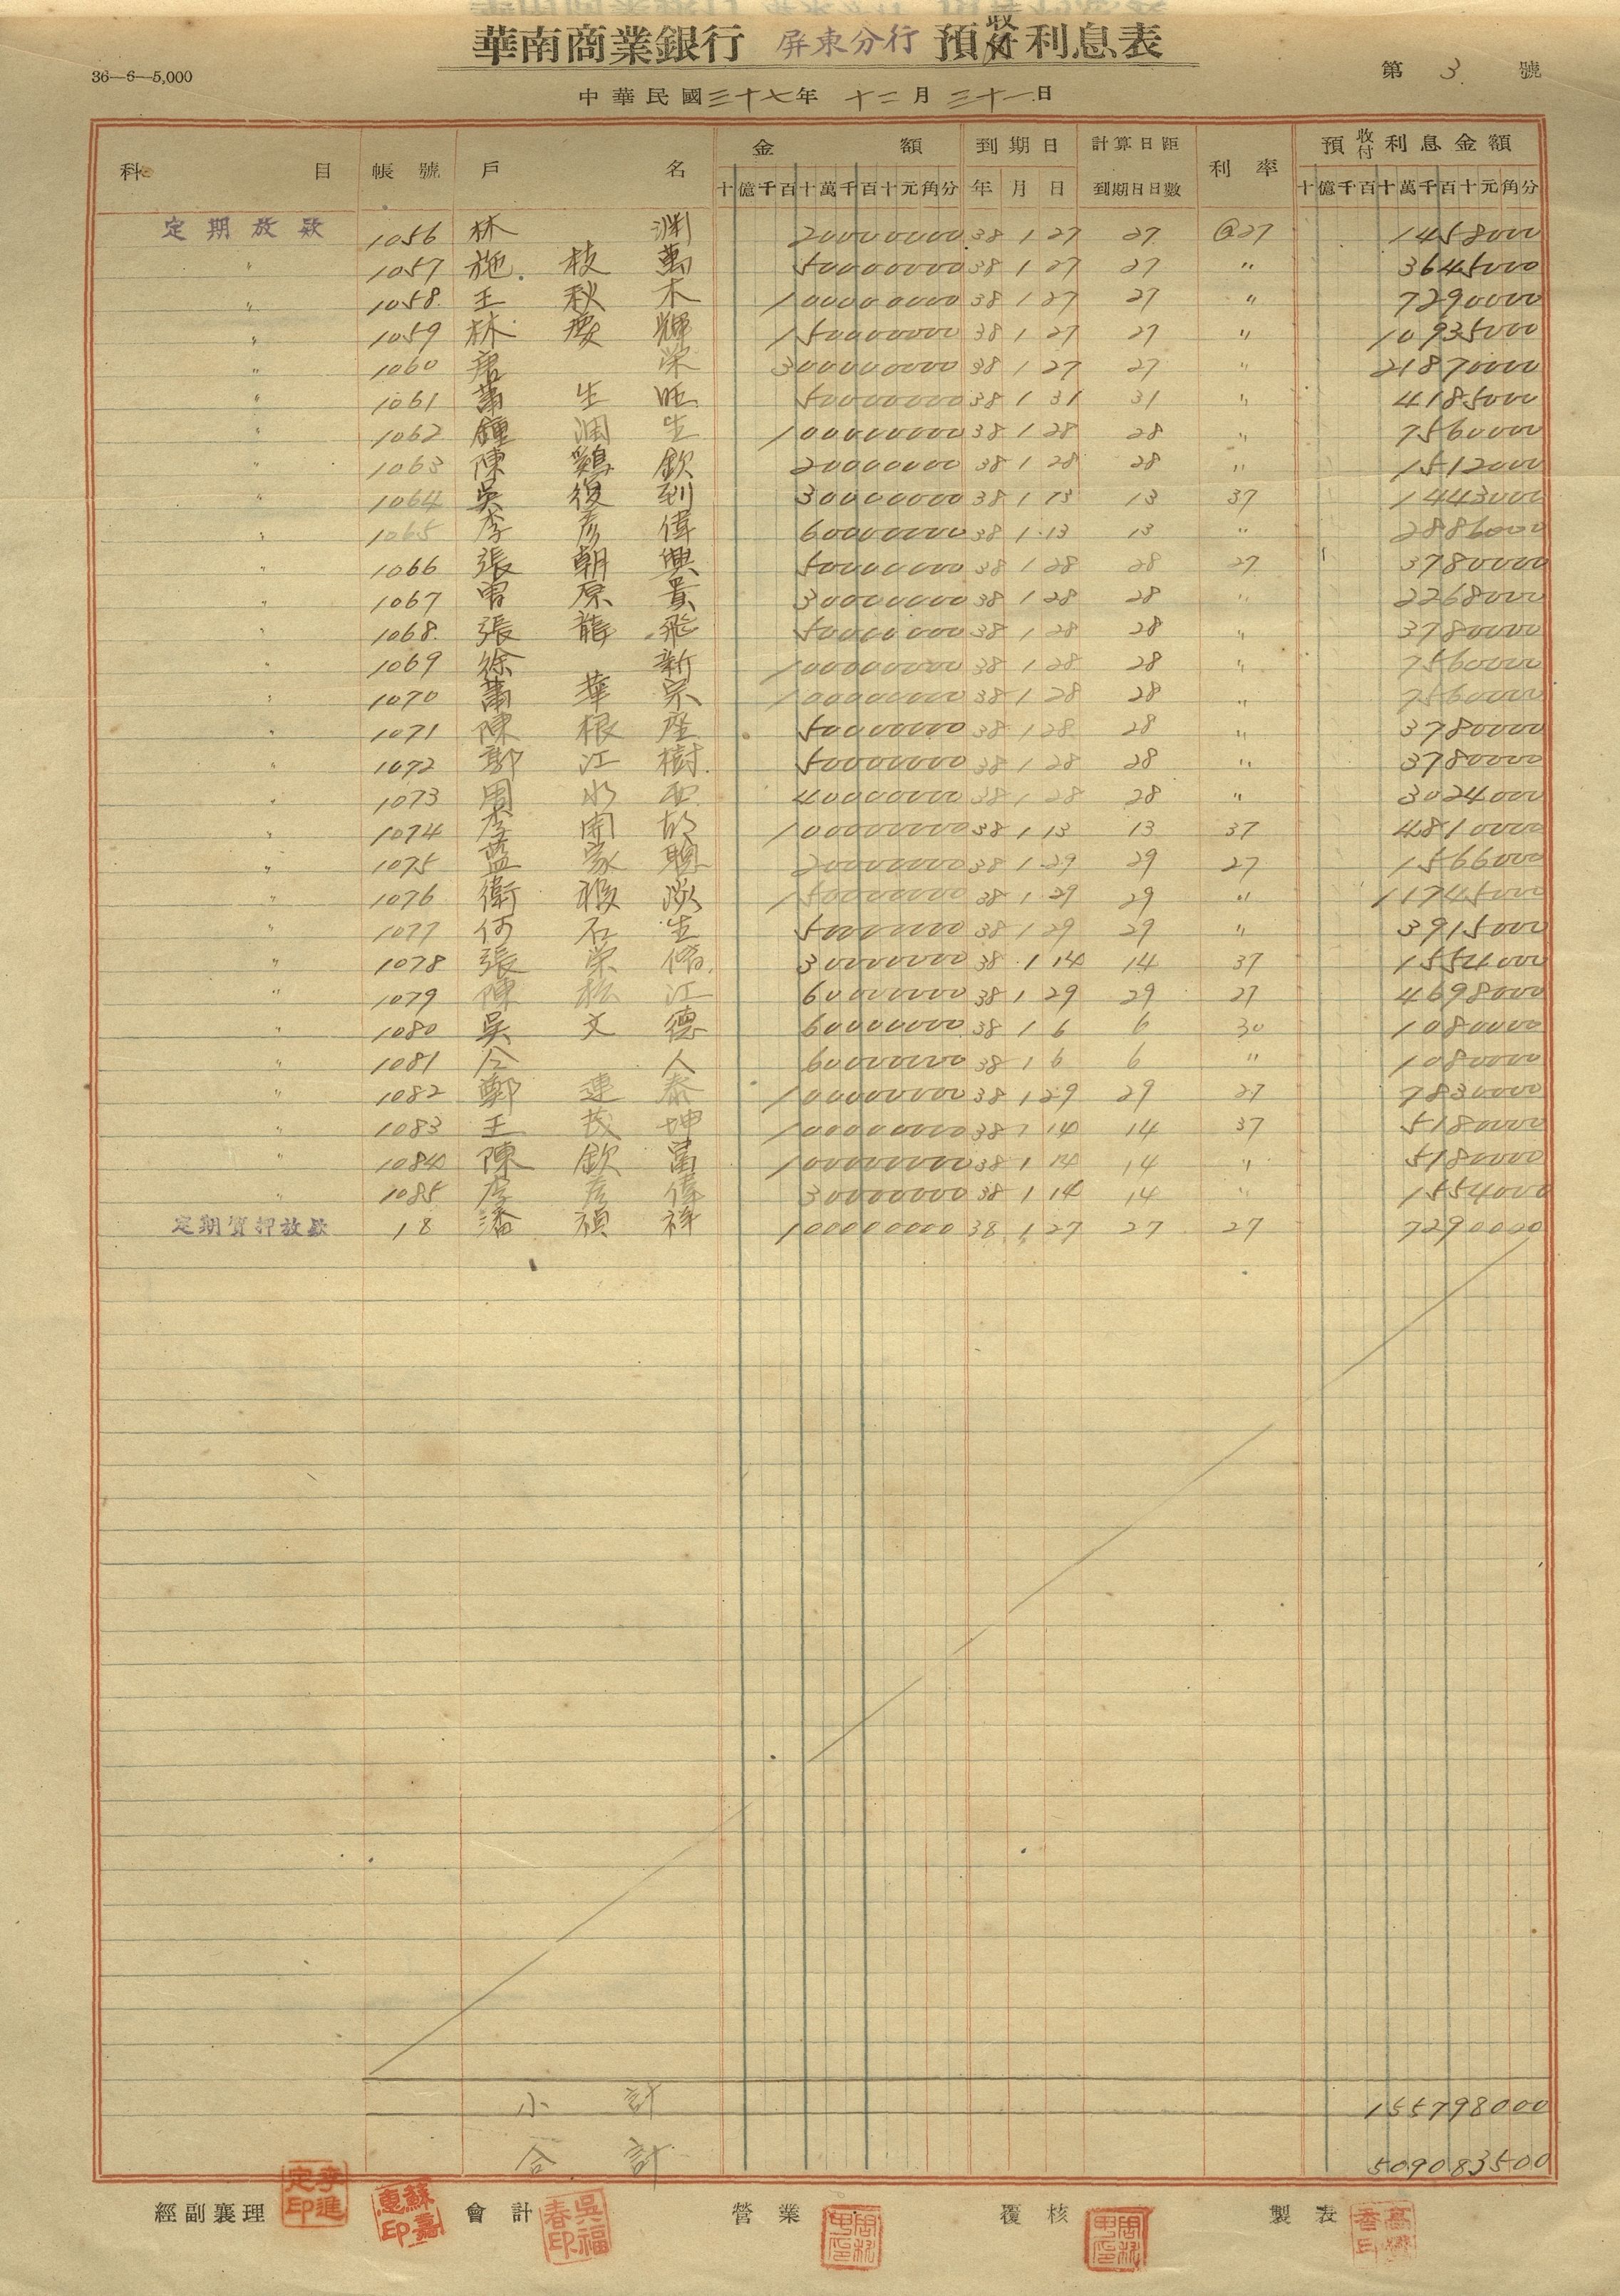 華南商業銀行 屏東分行 預收利息表
36—6—5,000
第 3 號
中華民國三十七年 十二月 三十一日
科目 帳號 戶名 金額 到期日 計算日距到期日日數 利率 預收付利息金額
十億千百十萬千百十元角分 年 月 日 十億千百十萬千百十元角分
定期放款 1056 林 渊 20000000 38 1 27 27 @27 1458000
〃 1057 施 枝 萬 50000000 38 1 27 27 〃 3645000
〃 1058 王 秋 木 100000000 38 1 27 27 〃 7290000
〃 1059 林 慶 輝 150000000 38 1 27 27 〃 10935000
〃 1060 唐 榮 300000000 38 1 27 27 〃 21870000
〃 1061 蕭 生 旺 50000000 38 1 31 31 〃 4185000
〃 1062 鍾 潤 生 100000000 38 1 28 28 〃 7560000
〃 1063 陳 鷄 欽 20000000 38 1 28 28 〃 1512000
〃 1064 吳 復 到 30000000 38 1 13 13 37 1443000
〃 1065 李 彥 偉 60000000 38 1 13 13 〃 2886000
〃 1066 張 朝 興 50000000 38 1 28 28 27 3780000
〃 1067 曾 原 貴 30000000 38 1 28 28 〃 2268000
〃 1068 張 龍 飛 50000000 38 1 28 28 〃 3780000
〃 1069 徐 新 100000000 38 1 28 28 〃 7560000
〃 1070 蕭 華 宗 100000000 38 1 28 28 〃 7560000
〃 1071 陳 根 座 50000000 38 1 28 28 〃 3780000
〃 1072 郭 江 樹 50000000 38 1 28 28 〃 3780000
〃 1073 周 水 40000000 38 1 28 28 〃 3024000
〃 1074 李 開 100000000 38 1 13 13 37 4810000
〃 1075 藍 家 聰 20000000 38 1 29 29 27 1566000
〃 1076 衛 150000000 38 1 29 29 〃 11745000
〃 1077 何 石 生 50000000 38 1 29 29 〃 3915000
〃 1078 張 榮 30000000 38 1 14 14 37 1554000
〃 1079 陳 松 江 60000000 38 1 29 29 27 4698000
〃 1080 吳 文 德 60000000 38 1 6 6 30 1080000
〃 1081 仝 人 60000000 38 1 6 6 〃 1080000
〃 1082 鄭 連 泰 100000000 38 1 29 29 27 7830000
〃 1083 王 茂 坤 100000000 38 1 14 14 37 5180000
〃 1084 陳 欽 富 100000000 38 1 14 14 〃 5180000
〃 1085 李 彥 偉 30000000 38 1 14 14 〃 1554000
定期質押放款 18 潘 禎 祥 100000000 38 1 27 27 27 7290000
小計 155798000
合計 509083500
經副襄理 李進定印 蘇嘉惠印 會計 吳福春印 營業 覆核 製表